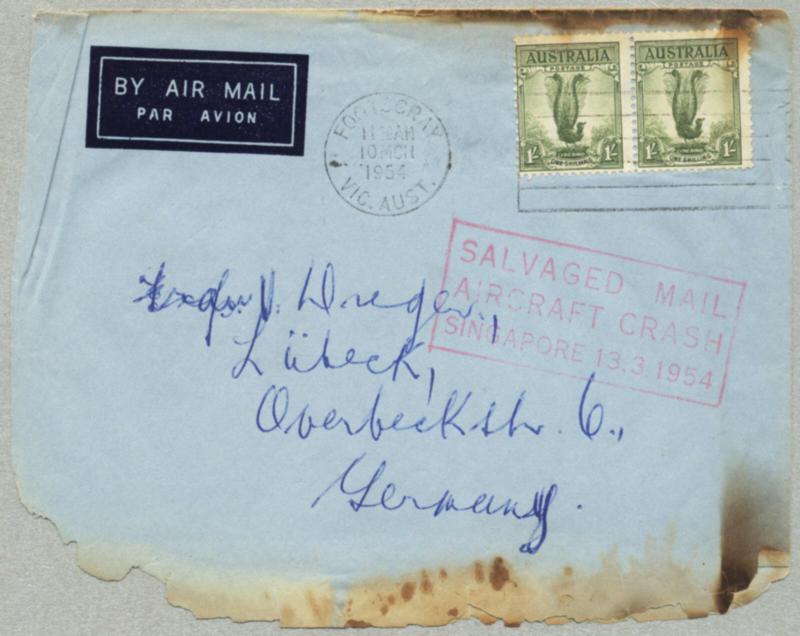 BY AIR MAIL
PAR AVION
FOOTSCRAY
11 AM
10 MCH
1954
VIC. AUST.
AUSTRALIA
POSTAGE
1/-
ONE SHILLING
1/-
AUSTRALIA
POSTAGE
1/-
ONE SHILLING
1/-
SALVAGED MAIL
AIRCRAFT CRASH
SINGAPORE 13.3.1954
Lübeck,
Overbeckstr. 6.,
Germany.